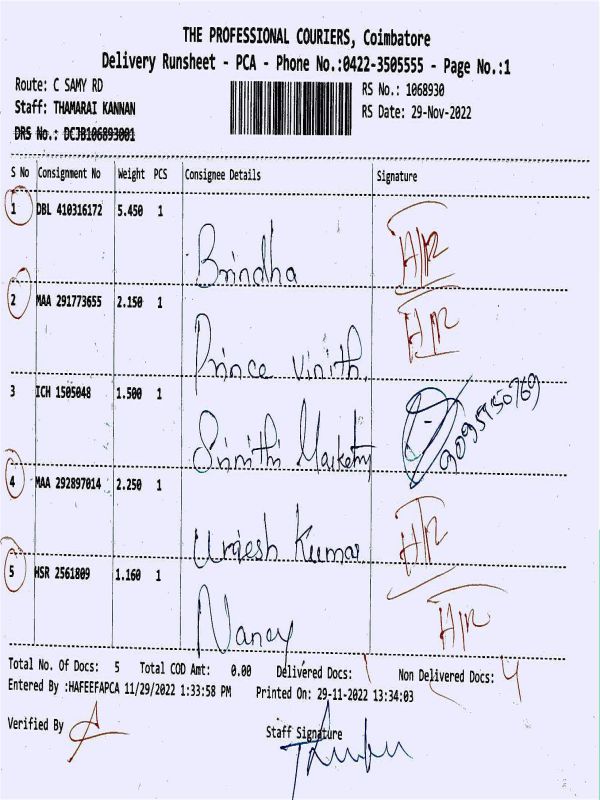 THE PROFESSIONAL COURIERS, Coimbatore
Delivery Runsheet - PCA - Phone No.:0422-3505555 - Page No.:1
Route: C SAMY RD
RS No.: 1068930
Staff: THAMARAI KANNAN
RS Date: 29-Nov-2022
DRS No.: DCJB106893001
S No Consignment No Weight PCS Consignee Details Signature
1 DBL 410316172 5.450 1
Brindha H/R
2 MAA 291773655 2.150 1
Prince Vinith. H/R
3 ICH 1505048 1.500 1
4 MAA 292897014 2.250 1
Kumar H/R
5 HSR 2561809 1.160 1
Nancy H/R
Total No. Of Docs: 5 Total COD Amt: 0.00 Delivered Docs: 1 Non Delivered Docs: 4
Entered By :HAFEEFAPCA 11/29/2022 1:33:58 PM Printed On: 29-11-2022 13:34:03
Verified By
Staff Signature